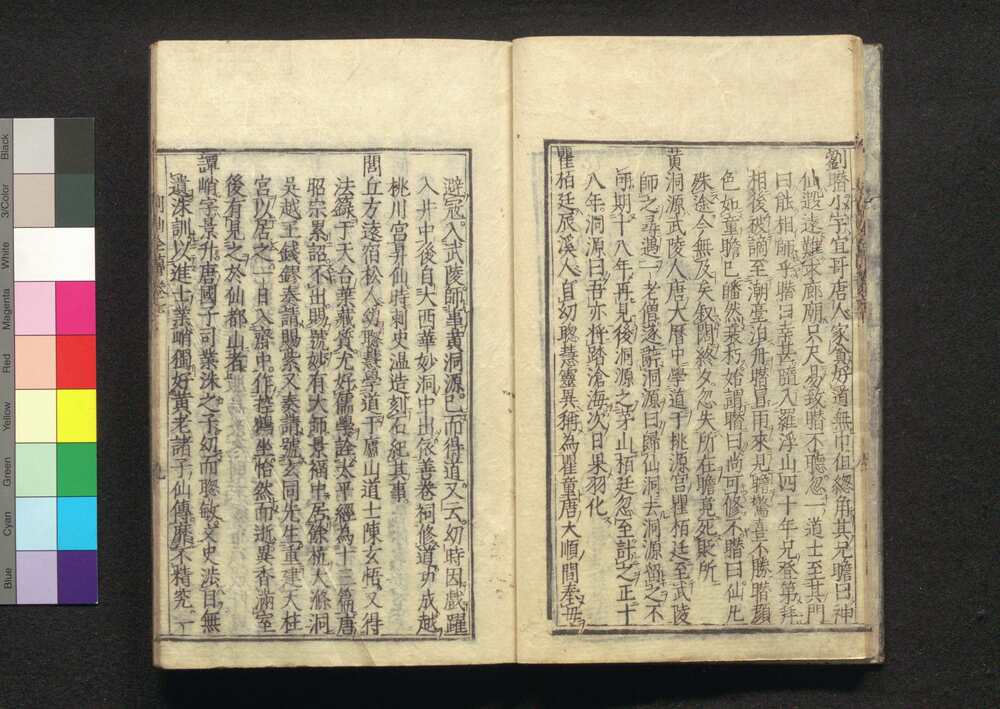 劉瞻小字宜哥唐人家貧好道無巾但總角其兄瞻曰神
仙遐遠難求廊廟咫尺易致瞻不聽忽一道士至其門
曰能相師乎瞻曰幸甚隨入羅浮山四十年兄登第拜
相後被謫至潮臺泊舟瞻冒雨來見瞻驚喜不勝瞻顏
色如童瞻已皤然衰朽始謂瞻曰尚可修不瞻曰仙凡
殊途今無及矣叙闊終夕忽失所在瞻竟死貶所
黄洞源武陵人唐大曆中學道于桃源宮瞿栢廷至武陵
師之尋遇一老僧逐辭洞源曰歸仙洞去洞源留之不
得期十八年再見後洞源之茅山栢廷忽至計之正十
八年洞源曰吾亦将踏滄海次日果羽化
瞿栢廷辰溪人自幼聰慧靈異稱為瞿童唐大順間奉母
避冦入武陵師事黄洞源已而得道又云幼時因戲躍
入井中後自大酉華妙洞中出依善卷祠修道功成越
桃川宮昇仙時刺史温造刻石紀其事
閭丘方遠宿松人幼聰慧學道于廬山道士陳玄悟又得
法籙于天台葉藏質尤好儒學詮太平經為十三篇唐
昭宗累詔不出賜號妙有大師景福中居餘杭大滌洞
吳越王錢鏐奏請賜紫又奏請號玄同先生重建天柱
宮以居之一日入齋中作控鶴坐怡然而逝異香滿室
後有見之於仙都山者
譚峭字景升唐國子司業洙之子幼而聰敏文史渉目無
遺洙訓以進士業峭獨好黄老諸子仙傳靡不精究一
Black
3/Color
White
Magenta
Red
Yellow
Green
Cyan
Blue